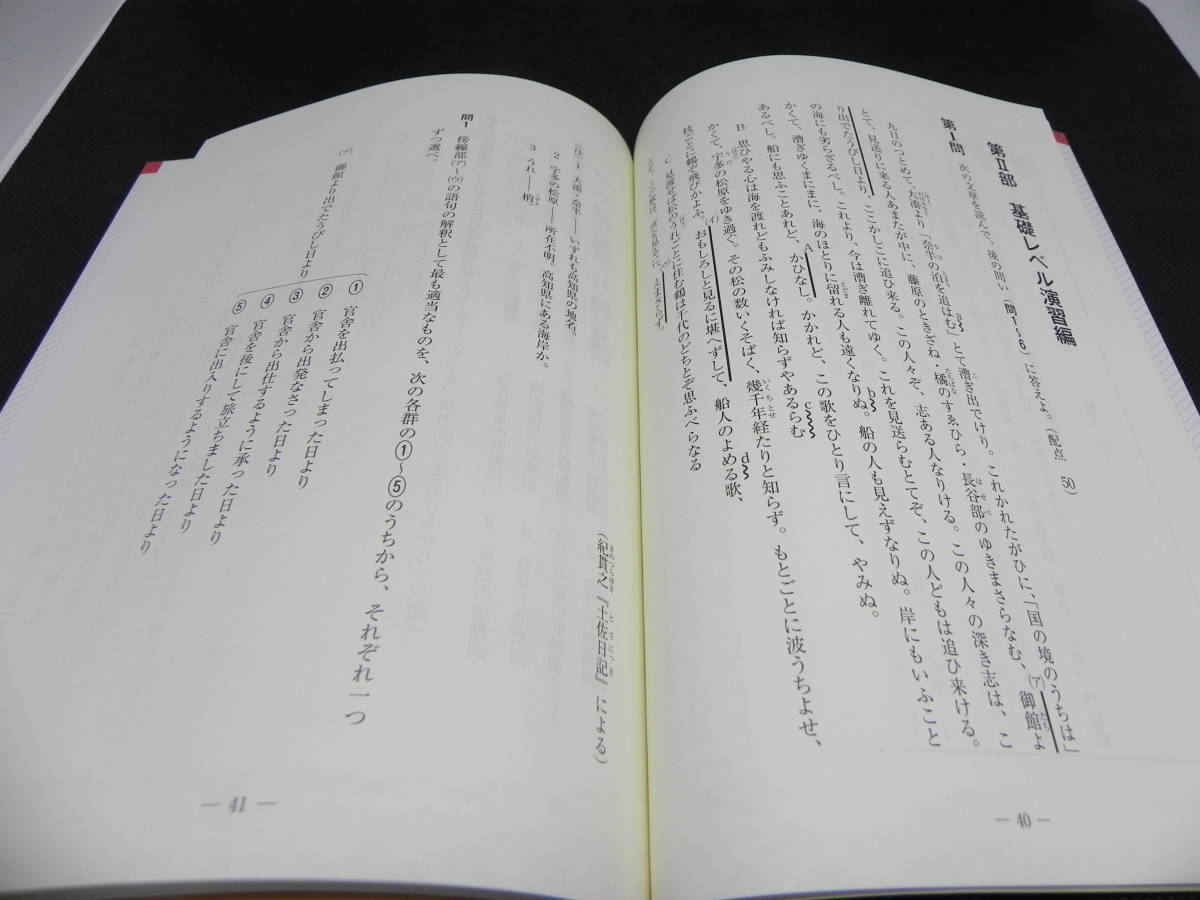 第Ⅱ部 基礎レベル演習編
第1問 次の文章を読んで、後の問い(問1～6)に答えよ。(配点 50)
九日のつとめて、大湊より「奈半の泊を追はむ」とて漕ぎ出でけり。これかれたがひに、「国の境のうちは」
とて、見送りに来る人あまたが中に、藤原のときざね・橘のすゑひら・長谷部のゆきまさらなむ、(ア)御館よ
り出でたうびし日より、ここかしこに追ひ来る。この人々ぞ、志ある人なりける。この人々の深き志は、こ
の海にも劣らざるべし。これより、今は漕ぎ離れてゆく。これを見送らむとてぞ、この人どもは追ひ来ける。
かくて、漕ぎゆくまにまに、海のほとりに留れる人も遠くなりぬ。船の人も見えずなりぬ。岸にもいふこと
あるべし。船にも思ふことあれど、かひなし。かかれど、この歌をひとり言にして、やみぬ。
B 思ひやる心は海を渡れどもふみしなければ知らずやあるらむ
かくて、宇多の松原をゆき過ぐ。その松の数いくそばく、幾千年経たりと知らず。もとごとに波うちよせ、
枝ごとに鶴ぞ飛びかよふ。(イ)おもしろしと見るに堪へずして、船人のよめる歌、
C 見渡せば松のうれごとに住む鶴は千代のどちとぞ思ふべらなる
— 40 —
(紀貫之『土佐日記』による)
(注) 1 大湊・奈半――いずれも高知県の地名。
2 宇多の松原――所在不明。高知県にある海岸か。
3 うれ――梢
問1 傍線部(ア)～(ウ)の語句の解釈として最も適当なものを、次の各群の①～⑤のうちから、それぞれ一つ
ずつ選べ。
(ア) 御館より出でたうびし日より
① 官舎を出払ってしまった日より
② 官舎から出発なさった日より
③ 官舎から出仕するように承った日より
④ 官舎を後にして旅立ちました日より
⑤ 官舎に出入りするようになった日より
— 41 —